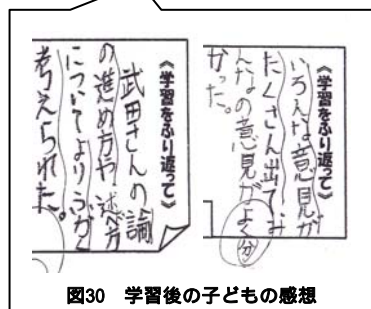 《学習をふり返って》
いろんな意見が
たくさん出て、み
んなの意見がよく分
かった。
《学習をふり返って》
武田さんの論
の進め方や、述べ方
についてよりふかく
考えられた。
図30 学習後の子どもの感想